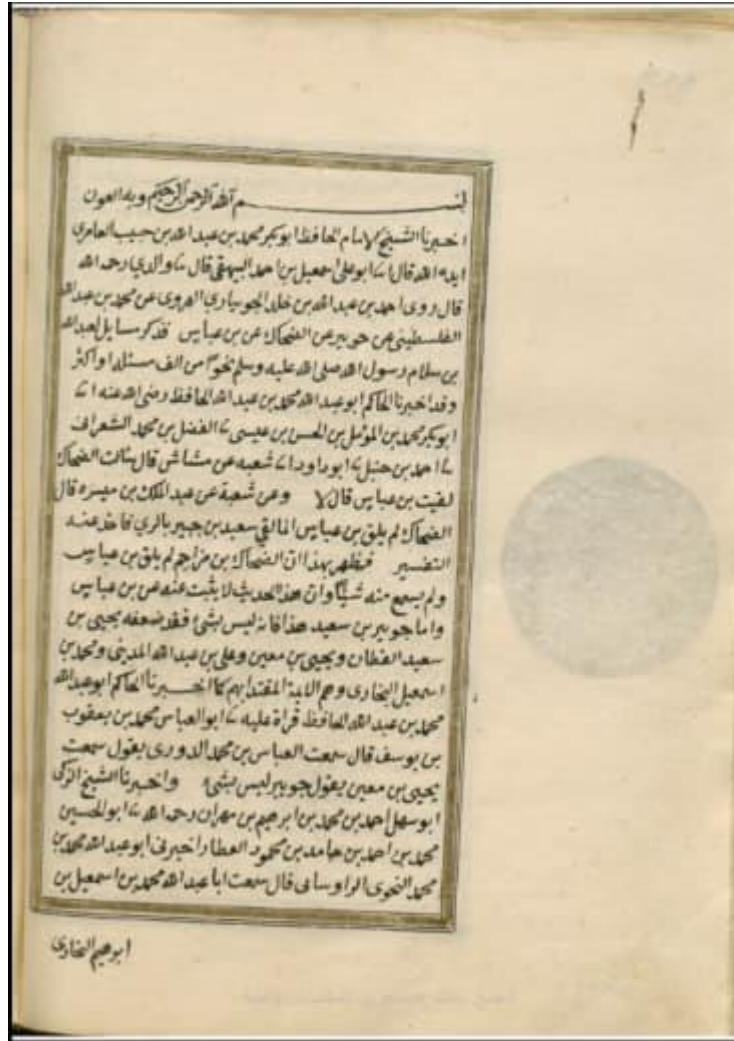 بسم الله الرحمن الرحيم وبه العون
اخبرنا الشيخ الامام الحافظ ابو بكر محمد بن عبد الله بن حبيب العامرى
ايده الله قال ابو على اسمعيل بن احمد البيهقى قال والدي رحمه الله
قال روى احمد بن عبد الله بن خلد الجويبارى الهروى عن محمد بن عبد الله
الفلسطينى عن جويبر عن الضحاك عن بن عباس فذكر مسايل لعبد الله
بن سلام رسول الله صلى الله عليه وسلم نحوا من الف مسئلة او اكثر
وقد اخبرنا الحاكم ابو عبد الله محمد بن عبد الله الحافظ رضى الله عنه
ابو بكر محمد بن المومل بن الحسن بن عيسى الفضل بن محمد الشعرانى
احمد بن حنبل ابو داود شعبه عن مشاش قال سالت الضحاك
لقيت بن عباس قال لا وعن شعبة عن عبد الملك بن ميسره قال
الضحاك لم يلق بن عباس انما لقي سعيد بن جبير بالري فاخذ عنه
التفسير فظهر بهذا ان الضحاك بن مزاحم لم يلق بن عباس
ولم يسمع منه شيأ وان هذ الحديث لا يثبت عنه عن بن عباس
واما جويبر بن سعيد هذا فانه ليس بشئ فقد ضعفه يحيى بن
سعيد القطان ويحيى بن معين وعلى بن عبد الله المدينى ومحمد بن
اسمعيل البخارى وهم الايمة المقتدا بهم كما اخبرنا الحاكم ابو عبد الله
محمد بن عبد الله الحافظ قراة عليه ابو العباس محمد بن يعقوب
بن يوسف قال سمعت العباس بن محمد الدورى يقول سمعت
يحيى بن معين يقول جويبر ليس بشئ واخبرنا الشيخ الزكى
ابو سهل احمد بن محمد بن ابرهيم بن مهران رحمه الله ابو الحسين
محمد بن احمد بن حامد بن محمود العطار اخبرنى ابو عبد الله محمد بن
محمد النحوى الراوسانى قال سمعت ابا عبد الله محمد بن اسمعيل بن
ابرهيم البخارى